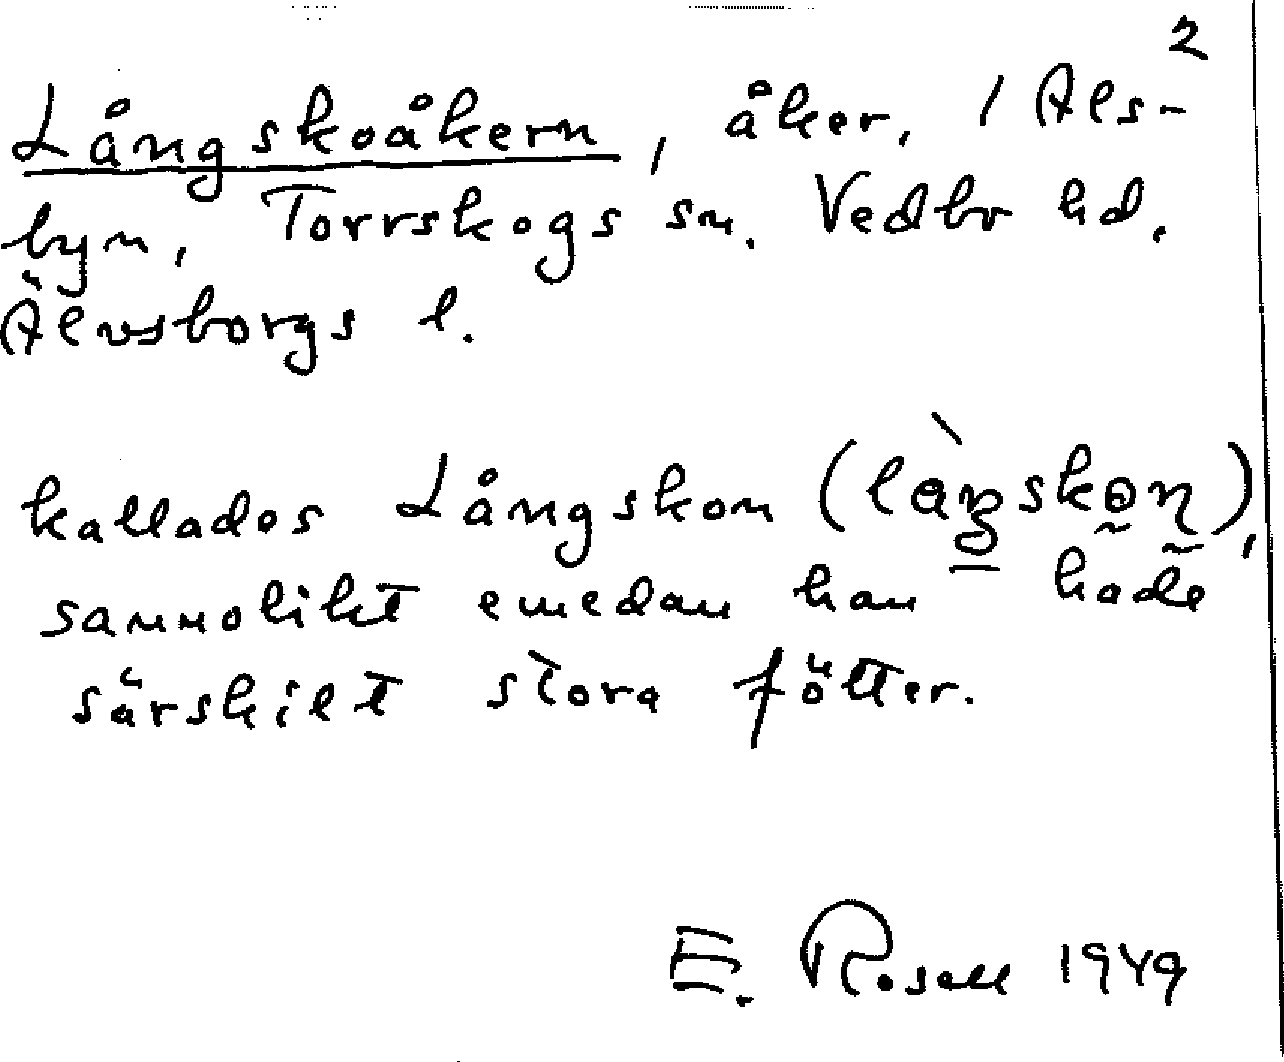 2
Långskoåkern, åker, 1 Als-
byn, Torrskogs sn. Vedbo hd.
Älvsborgs l.
kallades Långskon
sannolikt emedan han hade
särskilt stora fötter.
E. Rosell 1949